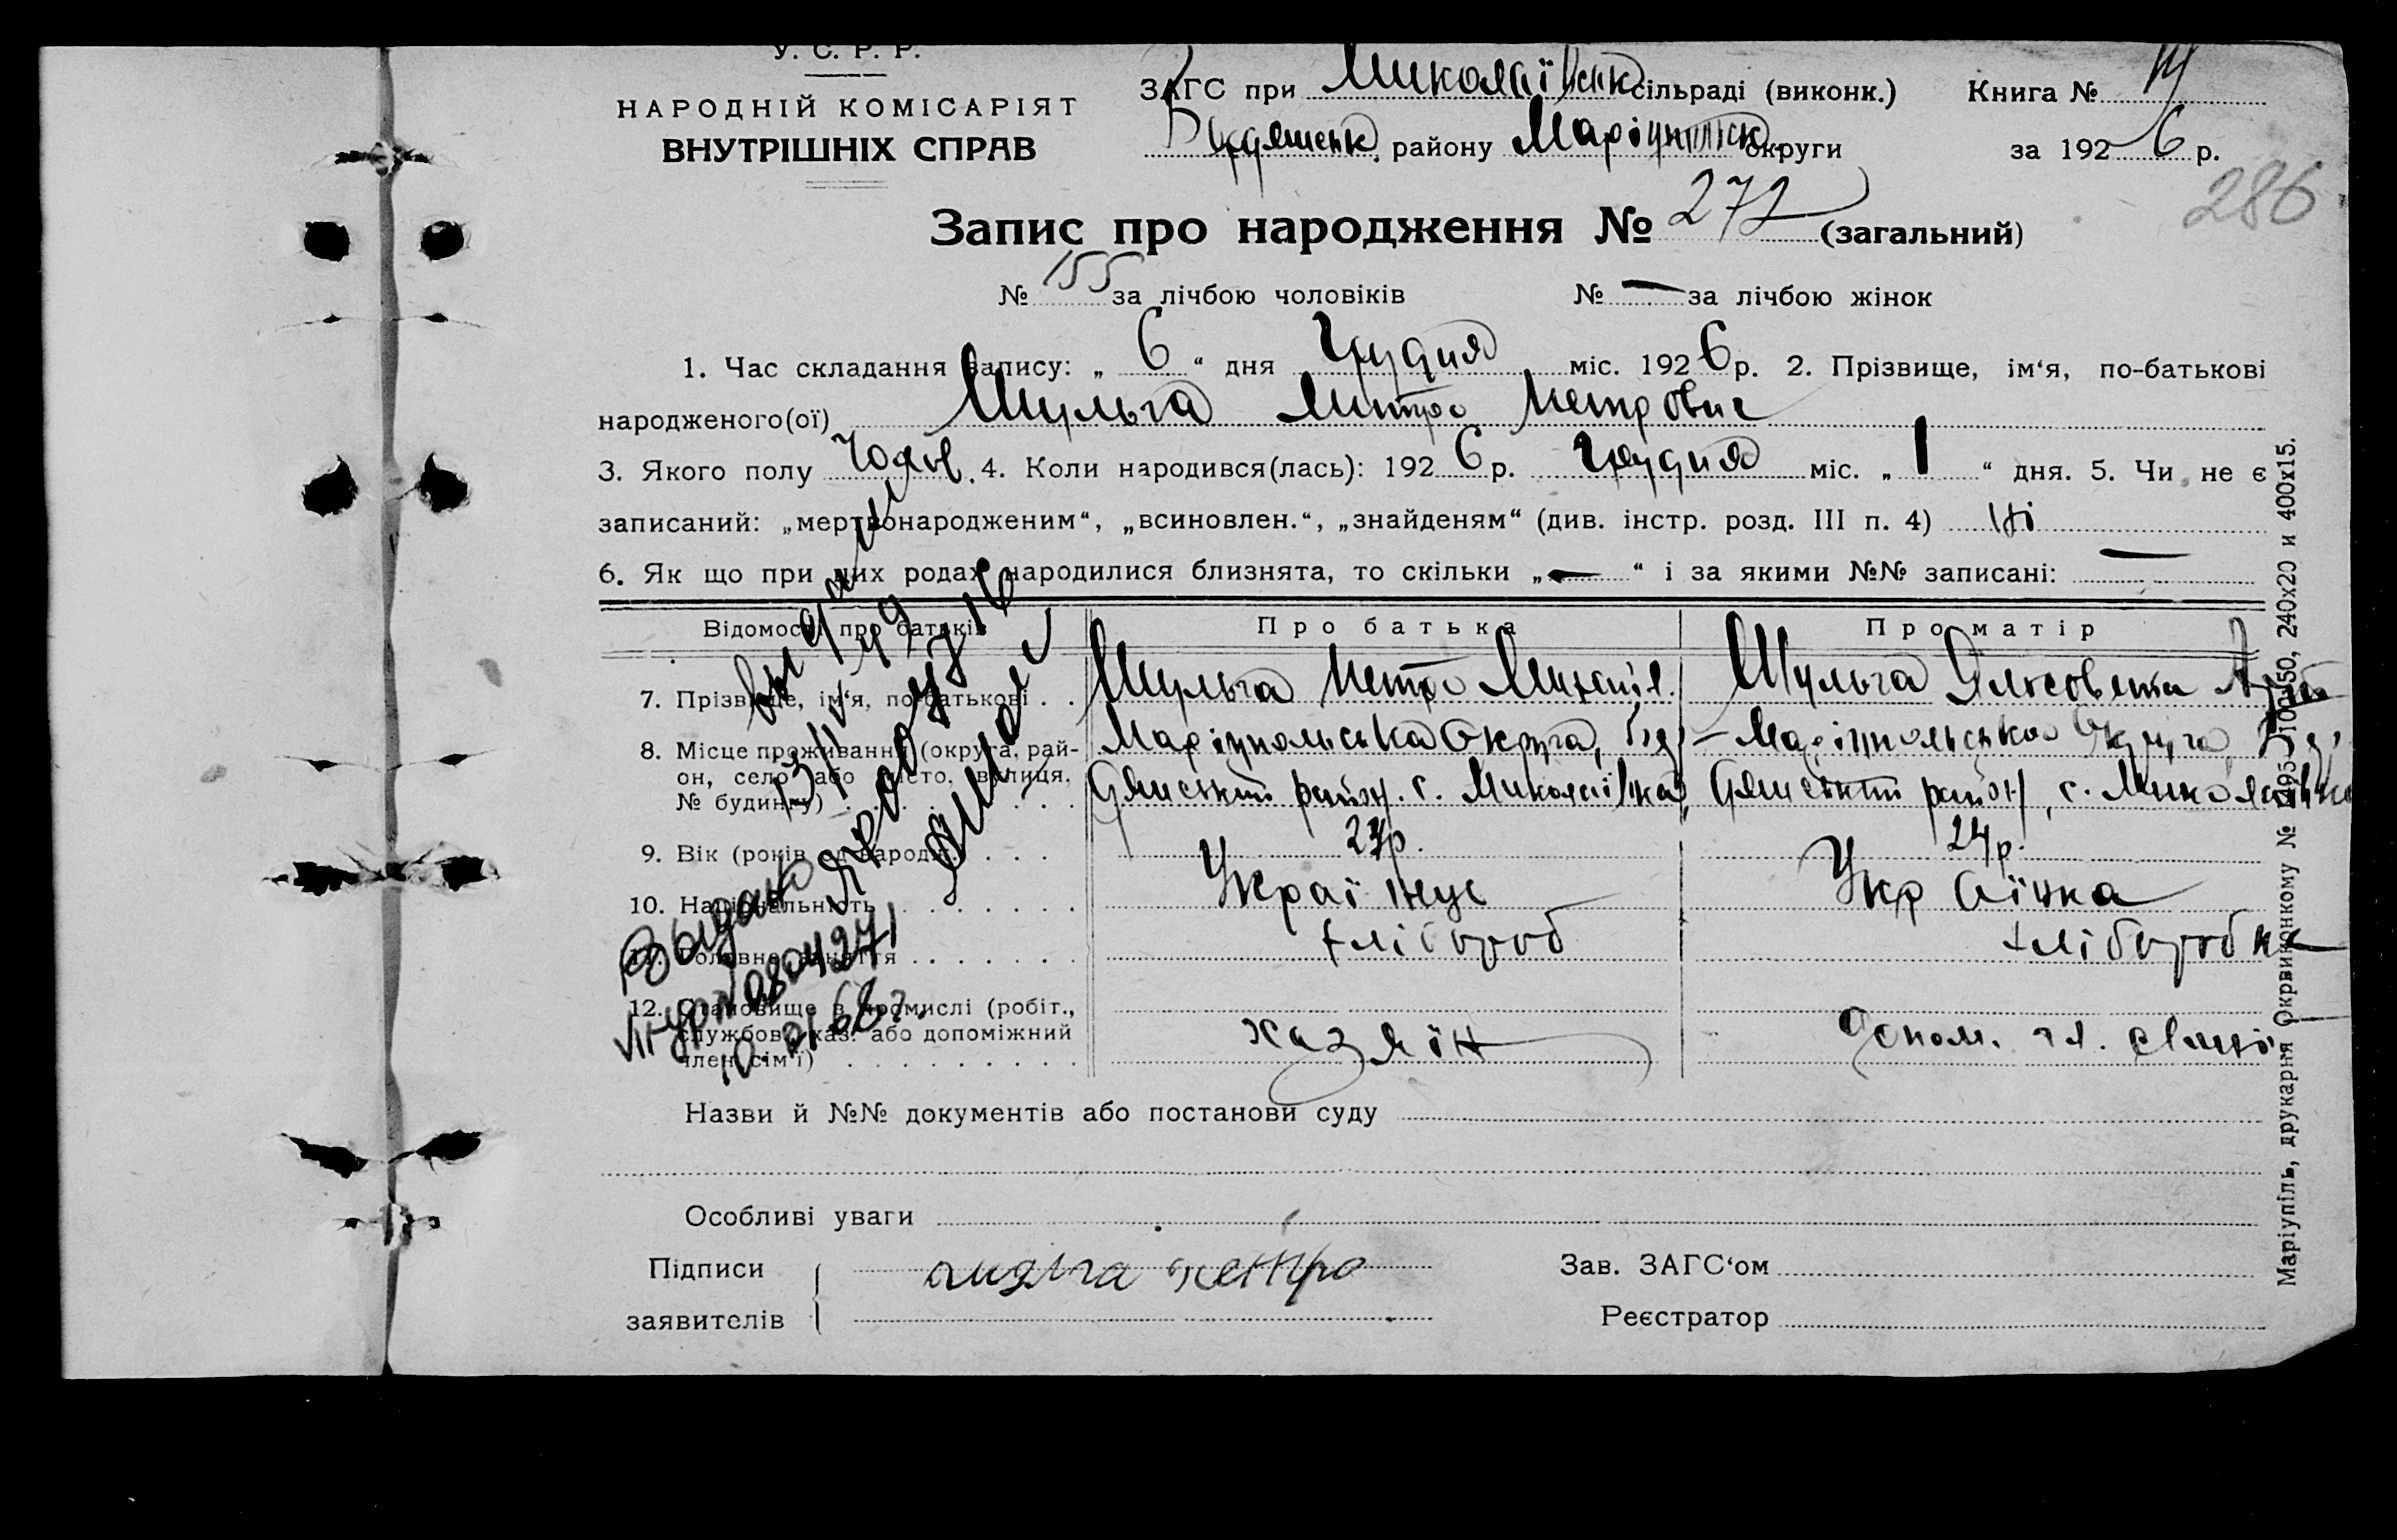 У. С. Р. Р.
НАРОДНІЙ КОМІСАРІЯТ
ВНУТРІШНІХ СПРАВ
ЗАГС при Миколаївськ сільраді (виконк.) Книга №
району Маріупільск округи за 1926 р.
286
Запис про народження № 272 (загальний)
№ 155 за лічбою чоловіків № — за лічбою жінок
1. Час складання запису: „ 6 “ дня Грудня міс. 1926 р. 2. Прізвище, ім‘я, по-батькові
народженого(ої) Шульга Митро Петрович
3. Якого полу 4. Коли народився(лась): 1926 р. Грудня міс. „ 1 “ дня. 5. Чи не є
записаний: „мертвонародженим“, „всиновлен.“, „знайденям“ (див. інстр. розд. III п. 4) Ні
6. Як що при цих родах народилися близнята, то скільки „ — “ і за якими №№ записані: —
Відомості про батьків Про батька Про матір
7. Прізвище, ім‘я, по-батькові . . Шульга Петро Михайл. Шульга
8. Місце проживання (округа, рай- Маріупольська Округа, Буд- Маріупольська Округа, Буд-
он, село або місто, вулиця, яниський район. с. Миколаївка, яниський район, с. Миколаївка
№ будинку) . . . . . . . .
9. Вік (років од народж.) . . . 24р.
10. Національність . . . . . . . Українец Українка
11. Головне заняття . . . . . . . хлібороб хліборобка
12. Становище в промислі (робіт.,
службов., хаз. або допоміжний хазяїн допом. чл. сімї
член сім‘ї) . . . . . . . . .
Выдано
68 г.
Назви й №№ документів або постанови суду
Особливі уваги
Підписи Шульга Петро Зав. ЗАГС‘ом
заявителів Реєстратор
Маріупіль, друкарня Окрвиконкому № 240х20 и 400х15.